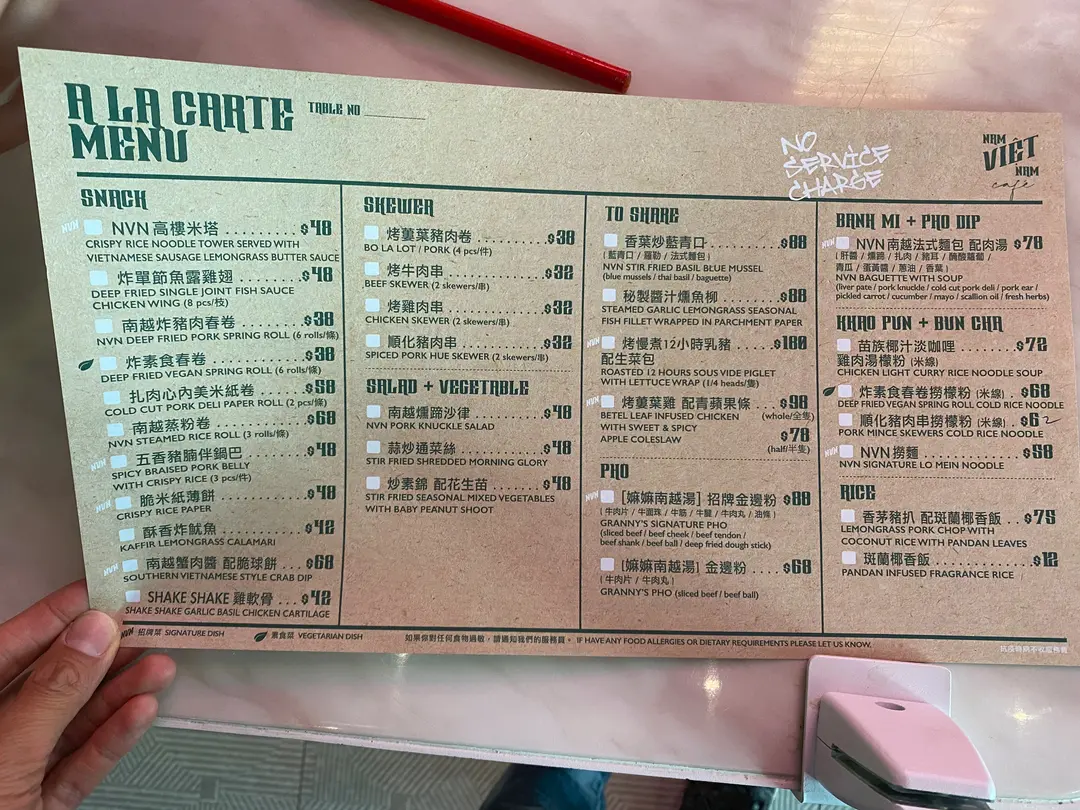 A LA CARTE
MENU
TABLE NO
NO
SERVICE
CHARGE
NAM
VIỆT
NAM
café
SNACK
NVN NVN 高樓米塔 $48
CRISPY RICE NOODLE TOWER SERVED WITH
VIETNAMESE SAUSAGE LEMONGRASS BUTTER SAUCE
炸單節魚露雞翅 $48
DEEP FRIED SINGLE JOINT FISH SAUCE
CHICKEN WING (8 pcs/枝)
NVN 南越炸豬肉春卷 $38
NVN DEEP FRIED PORK SPRING ROLL (6 rolls/條)
炸素食春卷 $38
DEEP FRIED VEGAN SPRING ROLL (6 rolls/條)
扎肉心內美米紙卷 $58
COLD CUT PORK DELI PAPER ROLL (2 pcs/條)
南越蒸粉卷 $68
NVN STEAMED RICE ROLL (3 rolls/條)
NVN 五香豬腩伴鍋巴 $48
SPICY BRAISED PORK BELLY
WITH CRISPY RICE (3 pcs/件)
NVN 脆米紙薄餅 $48
CRISPY RICE PAPER
酥香炸魷魚 $42
KAFFIR LEMONGRASS CALAMARI
NVN 南越蟹肉醬 配脆球餅 $68
SOUTHERN VIETNAMESE STYLE CRAB DIP
SHAKE SHAKE 雞軟骨 $42
SHAKE SHAKE GARLIC BASIL CHICKEN CARTILAGE
SKEWER
烤蔞葉豬肉卷 $38
BO LA LOT / PORK (4 pcs/件)
烤牛肉串 $32
BEEF SKEWER (2 skewers/串)
烤雞肉串 $32
CHICKEN SKEWER (2 skewers/串)
順化豬肉串 $32
SPICED PORK HUE SKEWER (2 skewers/串)
SALAD + VEGETABLE
南越燻蹄沙律 $48
NVN PORK KNUCKLE SALAD
蒜炒通菜絲 $48
STIR FRIED SHREDDED MORNING GLORY
炒素錦 配花生苗 $48
STIR FRIED SEASONAL MIXED VEGETABLES
WITH BABY PEANUT SHOOT
TO SHARE
香葉炒藍青口 $88
( 藍青口 / 羅勒 / 法式麵包 )
NVN STIR FRIED BASIL BLUE MUSSEL
(blue mussels / thai basil / baguette)
秘製醬汁燻魚柳 $88
STEAMED GARLIC LEMONGRASS SEASONAL
FISH FILLET WRAPPED IN PARCHMENT PAPER
NVN 烤慢煮12小時乳豬 $180
配生菜包
ROASTED 12 HOURS SOUS VIDE PIGLET
WITH LETTUCE WRAP (1/4 heads/隻)
NVN 烤蔞葉雞 配青蘋果條 $98
BETEL LEAF INFUSED CHICKEN (whole/全隻)
WITH SWEET & SPICY $78
APPLE COLESLAW (half/半隻)
PHO
NVN [嫲嫲南越湯] 招牌金邊粉 $88
( 牛肉片 / 牛面珠 / 牛筋 / 牛𦟌 / 牛肉丸 / 油條 )
GRANNY'S SIGNATURE PHO
(sliced beef / beef cheek / beef tendon /
beef shank / beef ball / deep fried dough stick)
[嫲嫲南越湯] 金邊粉 $68
( 牛肉片 / 牛肉丸 )
GRANNY'S PHO (sliced beef / beef ball)
BANH MI + PHO DIP
NVN NVN 南越法式麵包 配肉湯 $78
( 肝醬 / 燻蹄 / 扎肉 / 豬耳 / 醃酸蘿蔔 /
青瓜 / 蛋黃醬 / 蔥油 / 香葉 )
NVN BAGUETTE WITH SOUP
(liver pate / pork knuckle / cold cut pork deli / pork ear /
pickled carrot / cucumber / mayo / scallion oil / fresh herbs)
KHAO PUN + BUN CHA
苗族椰汁淡咖哩 $72
雞肉湯檬粉 (米線)
CHICKEN LIGHT CURRY RICE NOODLE SOUP
炸素食春卷撈檬粉 (米線) $68
DEEP FRIED VEGAN SPRING ROLL COLD RICE NOODLE
順化豬肉串撈檬粉 (米線) $62
PORK MINCE SKEWERS COLD RICE NOODLE
NVN NVN 撈麵 $58
NVN SIGNATURE LO MEIN NOODLE
RICE
香茅豬扒 配斑蘭椰香飯 $75
LEMONGRASS PORK CHOP WITH
COCONUT RICE WITH PANDAN LEAVES
斑蘭椰香飯 $12
PANDAN INFUSED FRAGRANCE RICE
NVN 招牌菜 SIGNATURE DISH 素食菜 VEGETARIAN DISH 如果你對任何食物過敏，請通知我們的服務員。 IF HAVE ANY FOOD ALLERGIES OR DIETARY REQUIREMENTS PLEASE LET US KNOW.